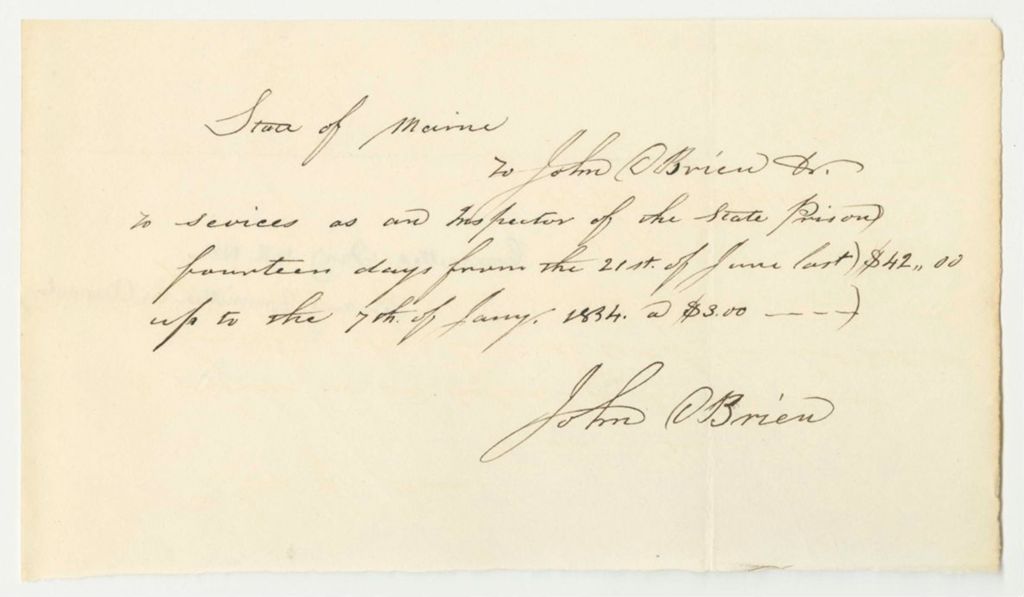 State of Maine
to John OBrien Dr.
to sevices as an Inspector of the State Prison)
fourteen days from the 21st. of June last) $42,,00
up to the 7th. of Jany. 1834. a $3.00 - - - -)
John OBrien